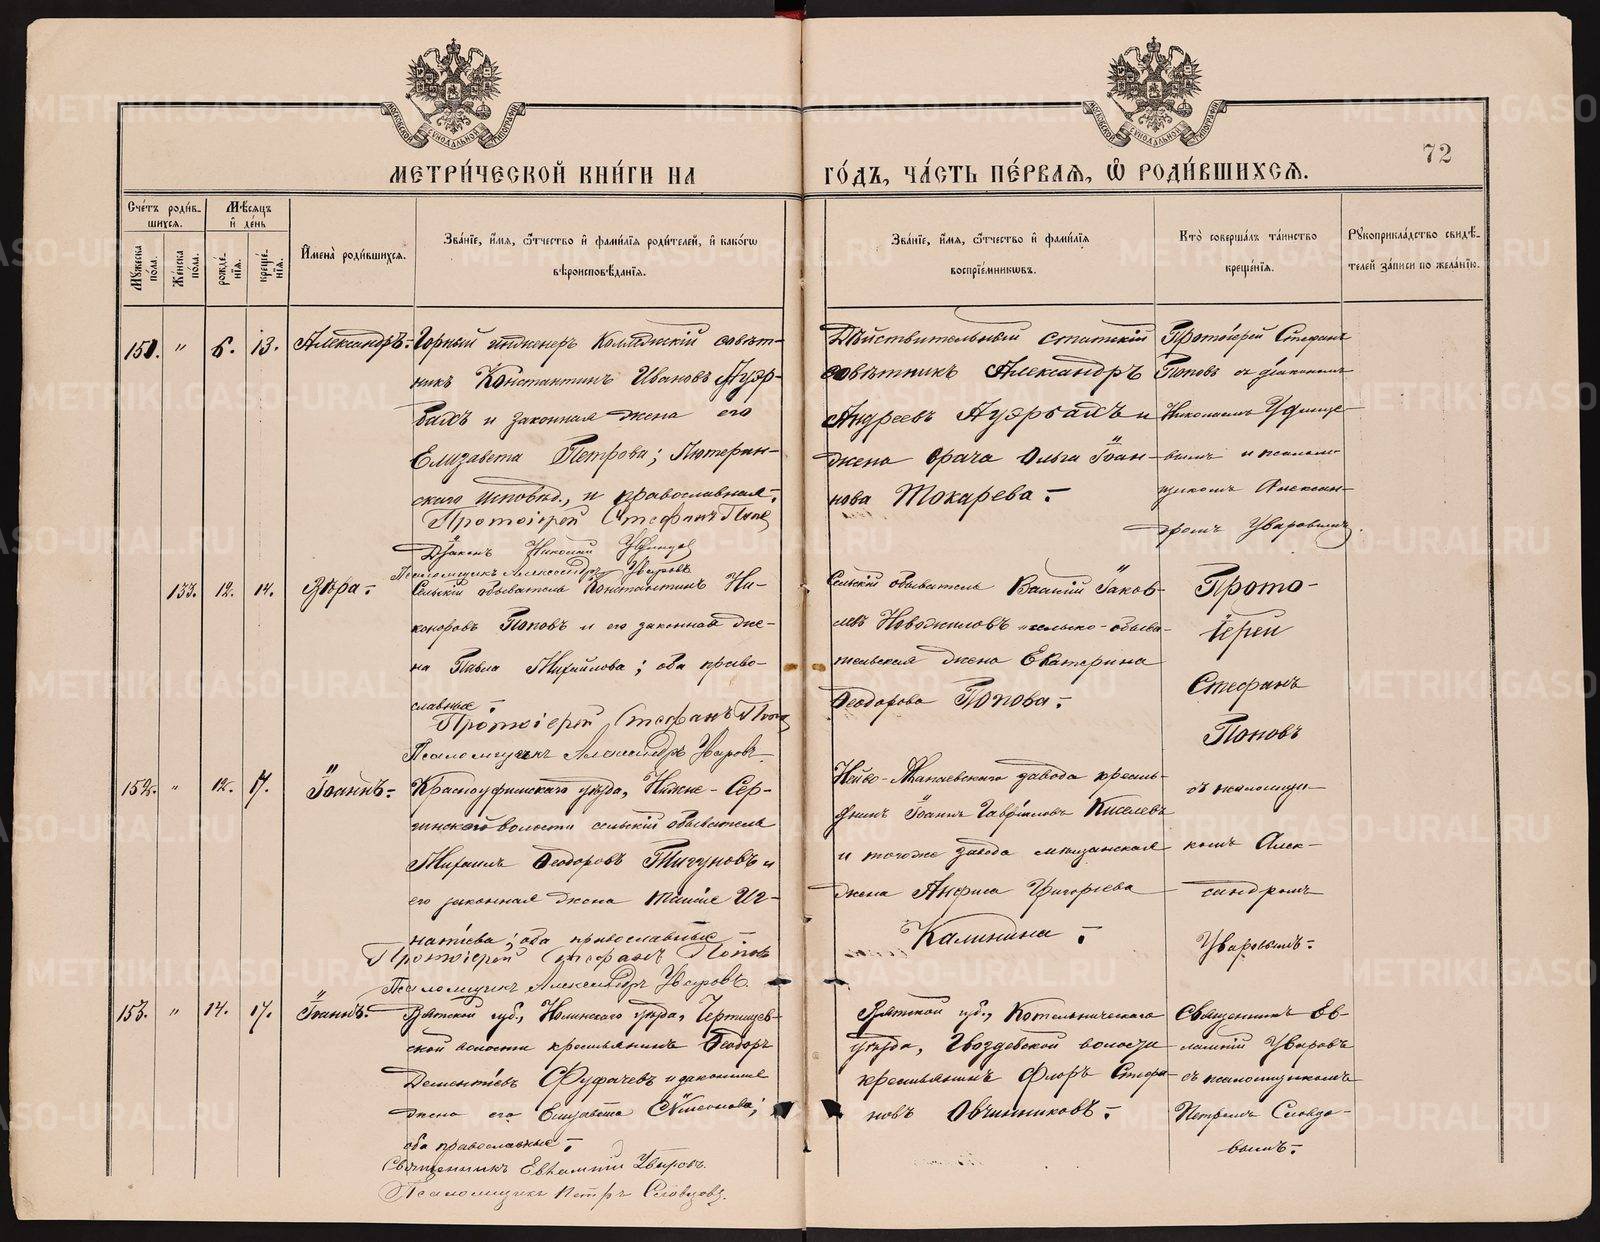 МЕТРИ́ЧЕСКОЙ КНИ́ГИ НА
ГО́ДЪ, ЧА́СТЬ ПЕ́РВАѦ, Ѽ РОДИ́ВШИХСѦ.
72
Сче́тъ роди́в-
шихсѧ.
Мѣ́сѧцъ
и҆ де́нь
Мꙋ́жеска
по́ла.
Же́нска
по́ла.
рожде́-
нїѧ.
креще́-
нїѧ.
И҆мена̀ роди́вшихсѧ.
Зва́нїе, и҆́мѧ, ѻ҆́тчество и҆ фами́лїѧ роди́телей, и҆ како́гѡ
вѣроисповѣ́данїѧ.
Зва́нїе, и҆́мѧ, ѻ҆́тчество и҆ фами́лїѧ
воспрїе́мникѡвъ.
Кто̀ соверша́лъ та́инство
креще́нїѧ.
Рꙋкоприкла́дство свидѣ́-
телей за́писи по жела́нїю.
151. " 6. 13. Александръ.-
Горный инженеръ Коллежскій совѣт-
никъ Константинъ Ивановъ Ауэр-
бахъ и законная жена его
Елизавета Петрова; Лютеран-
скаго исповѣд., и православная.-
Протоіерей Стефанъ Попов
Діаконъ Николай
Псаломщикъ Александръ Уваровъ
Дѣйствительный статскій
совѣтникъ Александръ
Андреевъ Ауэрбахъ и
жена врача Ольга Іоан-
нова Токарева.-
Протоіерей Стефанъ
Поповъ съ діакономъ
Николаемъ
вымъ и псалом-
щикомъ Алексан-
дромъ Уваровымъ.
133. 12. 14. Вѣра.-
Сельскій обыватель Константинъ Ни-
коноровъ Поповъ и его законная же-
на Павла Михайлова; оба право-
славные.-
Протоіерей Стефанъ Попов
Псаломщикъ Александръ Уваровъ
Сельскій обыватель Василій Іаков-
левъ Новожиловъ и сельско-обыва-
тельская жена Екатерина
Ѳеодорова Попова.-
Прото-
іерей
Стефанъ
Поповъ
152. " 12. 17. Іоаннъ.-
Красноуфимскаго уѣзда, Нижне-Сер-
гинской волости сельскій обыватель
Михаилъ Ѳеодоровъ и
его законная жена Таисія Иг-
натіева; оба православные.-
Протоіерей Стефанъ Поповъ
Псаломщикъ Александръ Уваровъ.
Нейво-Алапаевскаго завода кресть-
янинъ Іоаннъ Гавріиловъ Киселевъ
и тогоже завода мѣщанская
жена Анфиса Григоріева
Калинина.-
съ псаломщи-
комъ Алек-
сандромъ
Уваровымъ.-
153. " 14. 17. Іоаннъ.
Вятской губ., Нолинскаго уѣзда,
ской волости крестьянинъ Ѳеодоръ
Дементіевъ Фуфачевъ и законная
жена его Елизавета Сѵмеонова;
оба православные.-
Священникъ Евлампій Уваровъ.
Псаломщикъ Петръ Словцовъ.
Вятской губ., Котельническаго
уѣзда, Гвоздевской волости
крестьянинъ Флоръ Стефа-
новъ Овчинниковъ.-
Священникъ Ев-
лампій Уваровъ
съ псаломщикомъ
Петромъ Словцо-
вымъ.-